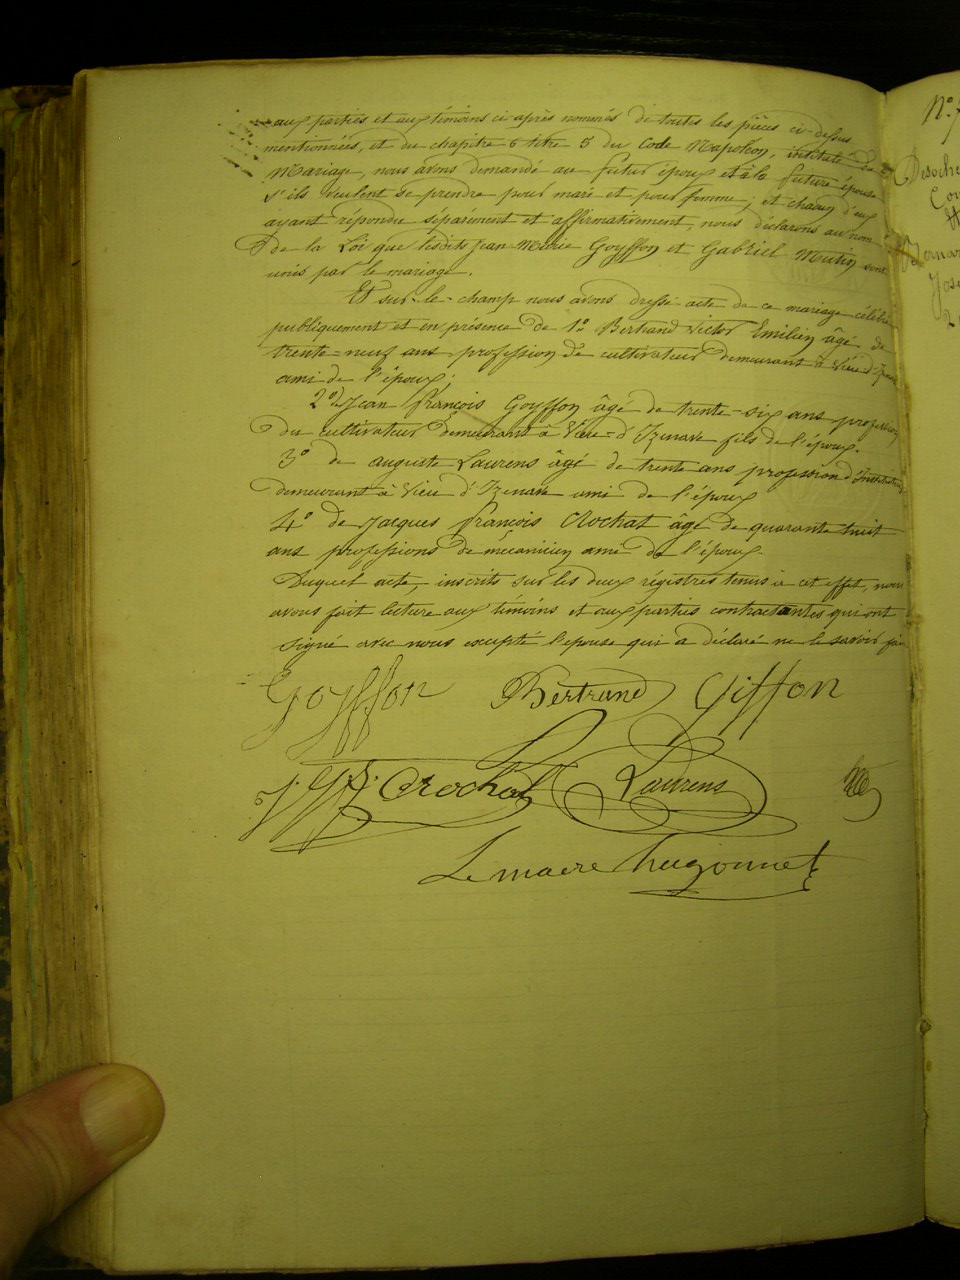 aux parties et aux témoins ci après nommés de toutes les pièces ci-dessus
mentionnées, et du chapitre 6 titre 5 du Code Napoléon, intitulé du
Mariage, nous avons demandé au futur époux et à la future épouse
s'ils veulent se prendre pour mari et pour femme, et chacun d'eux
ayant répondu séparément et affirmativement, nous déclarons au nom
de la Loi que lesdits Jean Marie Goyffon et Gabriel Mutin sont
unis par le mariage.
Et sur-le-champ nous avons dressé acte de ce mariage célébré
publiquement et en présence de 1º Bertrand Victor Emilien âgé de
trente-neuf ans profession de cultivateur demeurant à Vieu-d'Izenave
ami de l'époux,
2º de Jean François Goyffon âgé de trente-six ans profession
de cultivateur demeurant à Vieu-d'Izenave fils de l'époux.
3º de auguste Laurens âgé de trente ans profession d'Instituteur
demeurant à Vieu d'Izenave ami de l'époux
4º de Jacques françois Crochat âgé de quarante huit
ans professions de mécanicien ami de l'époux.
Duquel acte, inscrits sur les deux régistres tenus à cet effet, nous
avons fait lecture aux témoins et aux parties contractantes qui ont
signé avec nous excepté l'épouse qui a déclaré ne le savoir
Goyffon Bertrand Giffon
Crochat Laurens
Le maire hugonnet
Nº